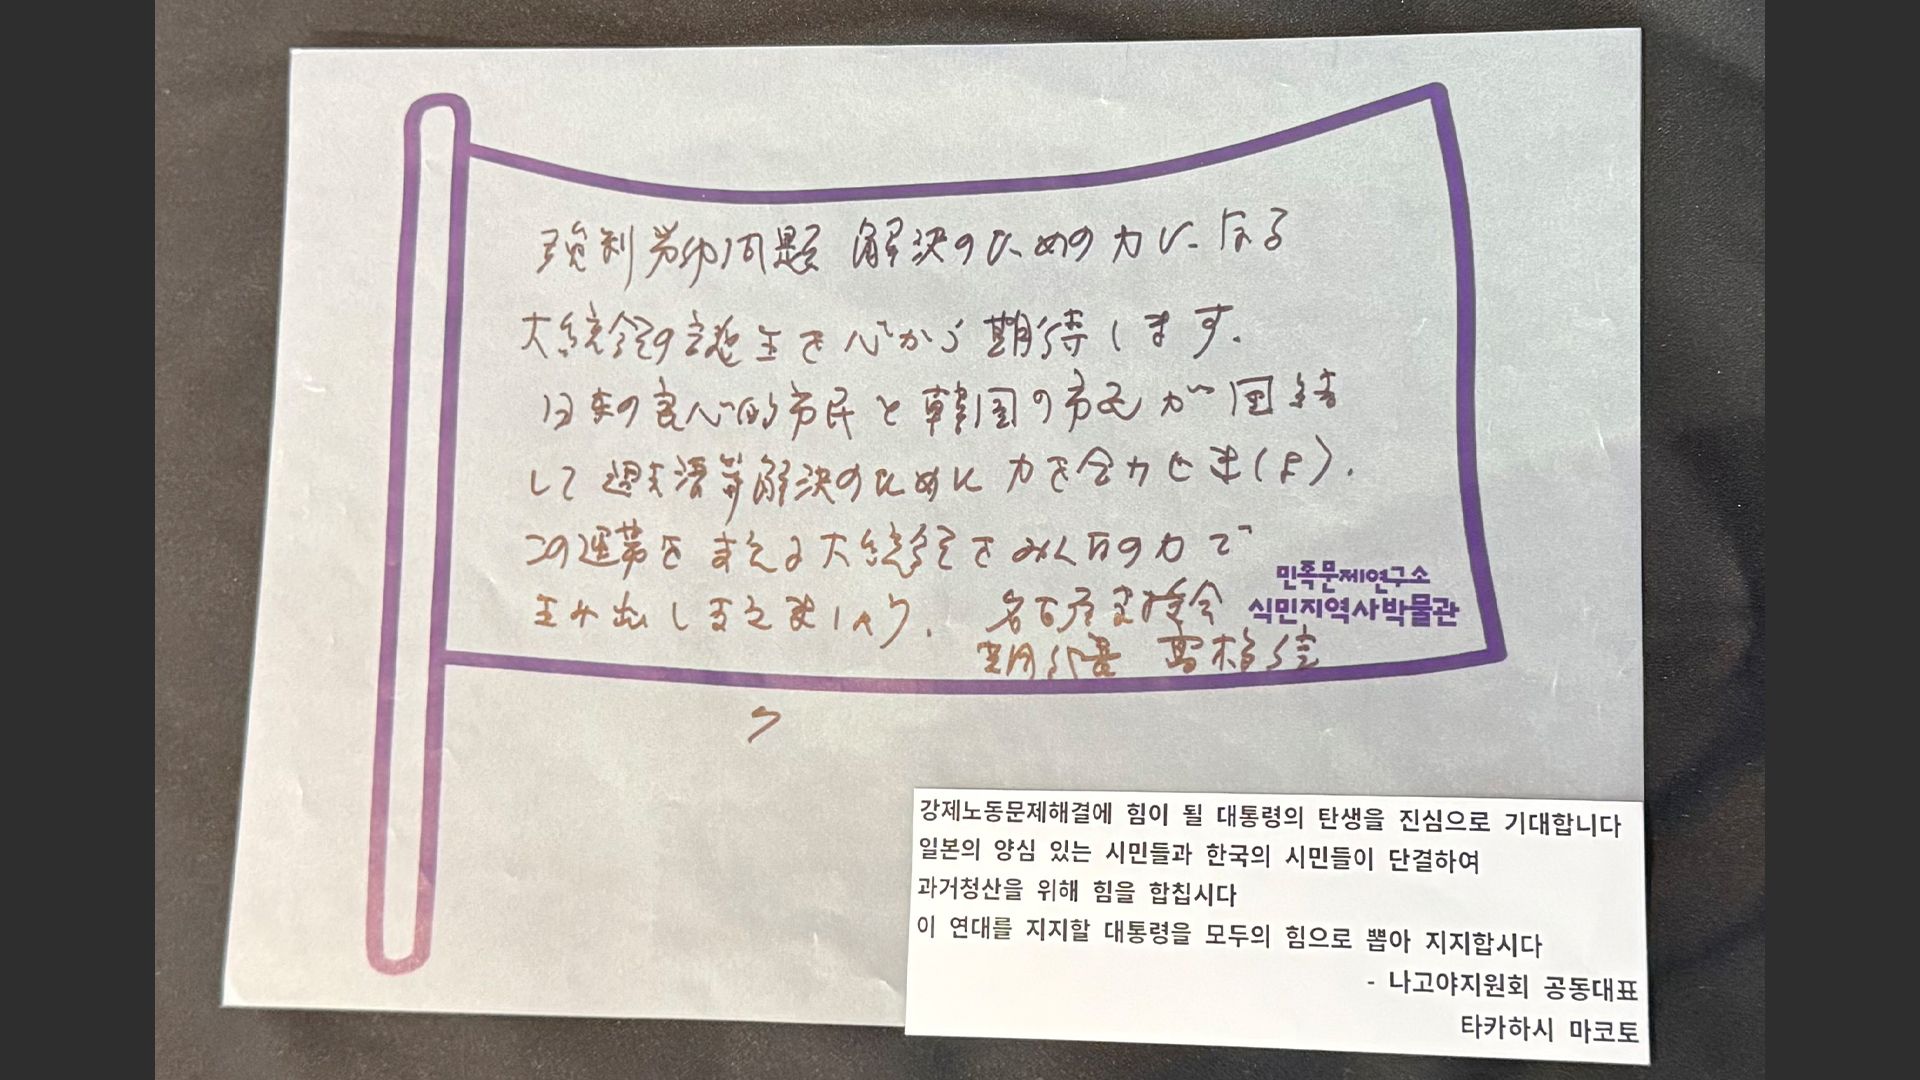 強制労働問題 解決のための力になる
大統領の誕生を心から期待します.
日本の良心的市民と韓国の市民が団結
して過去清算解決のために力を合わせましょう.
この連帯を支える大統領をみんなの力で
生み出し支えましょう. 名古屋支援会
민족문제연구소
식민지역사박물관
강제노동문제해결에 힘이 될 대통령의 탄생을 진심으로 기대합니다
일본의 양심 있는 시민들과 한국의 시민들이 단결하여
과거청산을 위해 힘을 합칩시다
이 연대를 지지할 대통령을 모두의 힘으로 뽑아 지지합시다
- 나고야지원회 공동대표
타카하시 마코토